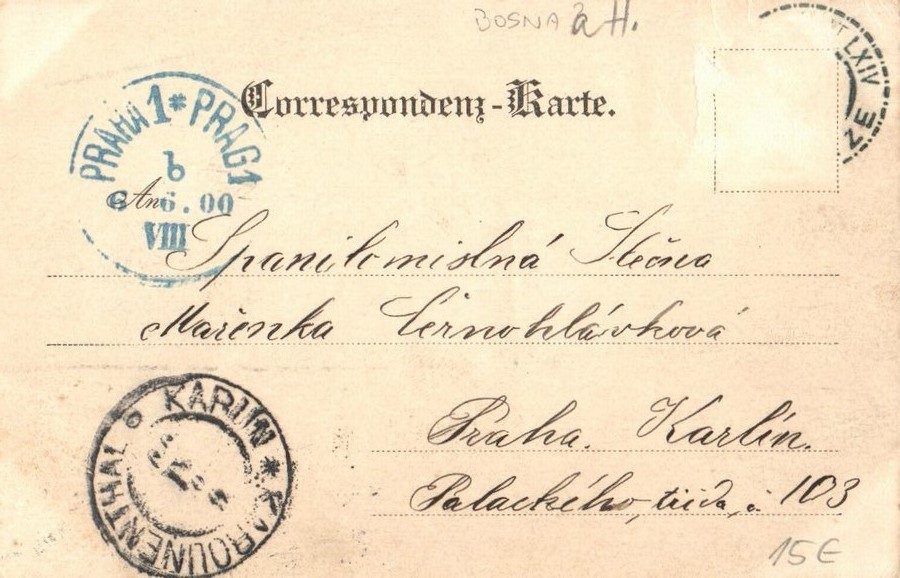 BOSNA a H.
LXIV
ZE
Correspondenz-Karte.
PRAHA 1 * PRAG 1
b
An
6. 00
VIII
Spanilomislná Slečna
Mařenka Černohlávková
KARLIN * KAROLINENTHAL
Praha. Karlín.
Palackého, třída, č. 103
15€